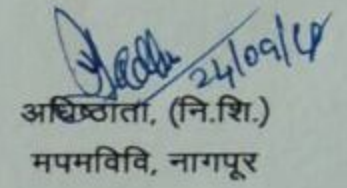 24/09/
अधिष्ठाता, (नि.शि.)
मपमविवि, नागपूर